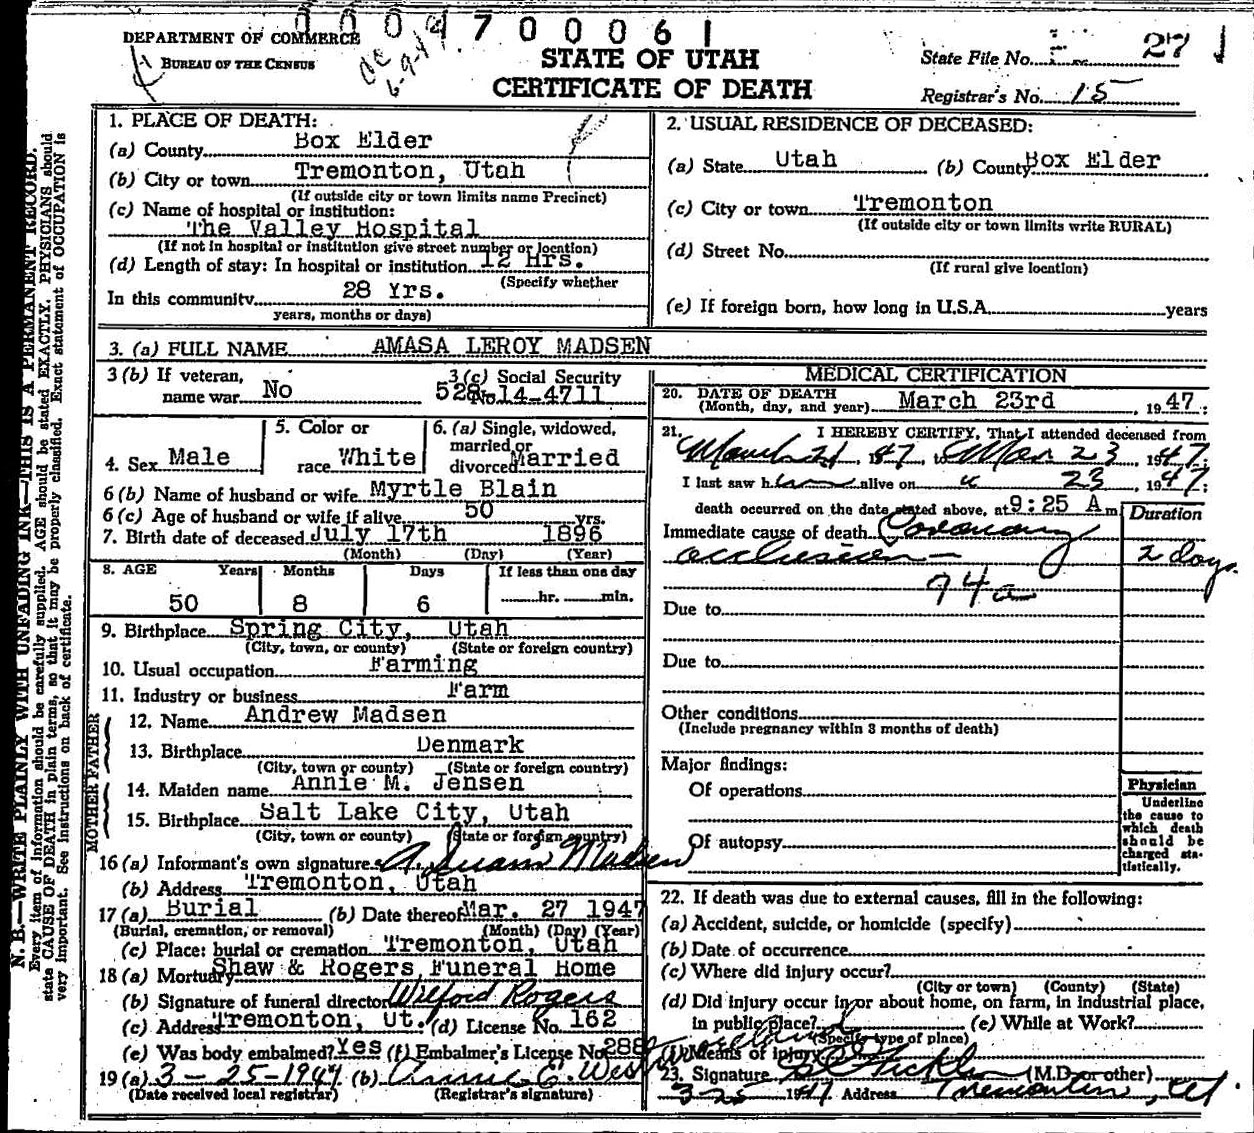 0 0 0 4 7 0 0 0 6 1
DEPARTMENT OF COMMERCE
BUREAU OF THE CENSUS
6-9-47
STATE OF UTAH
CERTIFICATE OF DEATH
State File No. 27
Registrar's No. 15
1. PLACE OF DEATH:
(a) County Box Elder
(b) City or town Tremonton, Utah
(If outside city or town limits name Precinct)
(c) Name of hospital or institution:
The Valley Hospital
(If not in hospital or institution give street number or location)
(d) Length of stay: In hospital or institution 12 Hrs.
(Specify whether
In this community 28 Yrs.
years, months or days)
2. USUAL RESIDENCE OF DECEASED:
(a) State Utah (b) County Box Elder
(c) City or town Tremonton
(If outside city or town limits write RURAL)
(d) Street No.
(If rural give location)
(e) If foreign born, how long in U.S.A. years
3. (a) FULL NAME AMASA LEROY MADSEN
3 (b) If veteran, name war No
3 (c) Social Security No. 528-14-4711
4. Sex Male
5. Color or race White
6. (a) Single, widowed, married or divorced Married
6 (b) Name of husband or wife Myrtle Blain
6 (c) Age of husband or wife if alive 50 yrs.
7. Birth date of deceased July 17th 1896
(Month) (Day) (Year)
8. AGE Years Months Days If less than one day
50 8 6 hr. min.
9. Birthplace Spring City, Utah
(City, town, or county) (State or foreign country)
10. Usual occupation Farming
11. Industry or business Farm
FATHER
12. Name Andrew Madsen
13. Birthplace Denmark
(City, town or county) (State or foreign country)
MOTHER
14. Maiden name Annie M. Jensen
15. Birthplace Salt Lake City, Utah
(City, town or county) (State or foreign country)
16 (a) Informant's own signature A. Madsen
(b) Address Tremonton, Utah
17 (a) Burial (b) Date thereof Mar. 27 1947
(Burial, cremation, or removal) (Month) (Day) (Year)
(c) Place: burial or cremation Tremonton, Utah
18 (a) Mortuary Shaw & Rogers Funeral Home
(b) Signature of funeral director Wilford Rogers
(c) Address Tremonton, Ut. (d) License No. 162
(e) Was body embalmed? Yes (f) Embalmer's License No. 288
19 (a) 3-25-1947 (b) Annie E. Westmoreland
(Date received local registrar) (Registrar's signature)
MEDICAL CERTIFICATION
20. DATE OF DEATH
(Month, day, and year) March 23rd, 1947:
21. I HEREBY CERTIFY, That I attended deceased from
March 21, 1947, to Mar 23, 1947;
I last saw him alive on " 23, 1947;
death occurred on the date stated above, at 9:25 A m
Duration
Immediate cause of death Coronary
occlusion — 2 days.
94a
Due to
Due to
Other conditions
(Include pregnancy within 3 months of death)
Major findings:
Of operations
Of autopsy
Physician
Underline
the cause to
which death
should be
charged sta-
tistically.
22. If death was due to external causes, fill in the following:
(a) Accident, suicide, or homicide (specify)
(b) Date of occurrence
(c) Where did injury occur?
(City or town) (County) (State)
(d) Did injury occur in or about home, on farm, in industrial place,
in public place? (e) While at Work?
(Specify type of place)
(f) Means of injury
23. Signature (M.D. or other)
3-25 1947 Address Tremonton, Ut
N. B.—WRITE PLAINLY WITH UNFADING INK—THIS IS A PERMANENT RECORD.
Every item of information should be carefully supplied. AGE should be stated EXACTLY. PHYSICIANS should
state CAUSE OF DEATH in plain terms, so that it may be properly classified. Exact statement of OCCUPATION is
very important. See instructions on back of certificate.